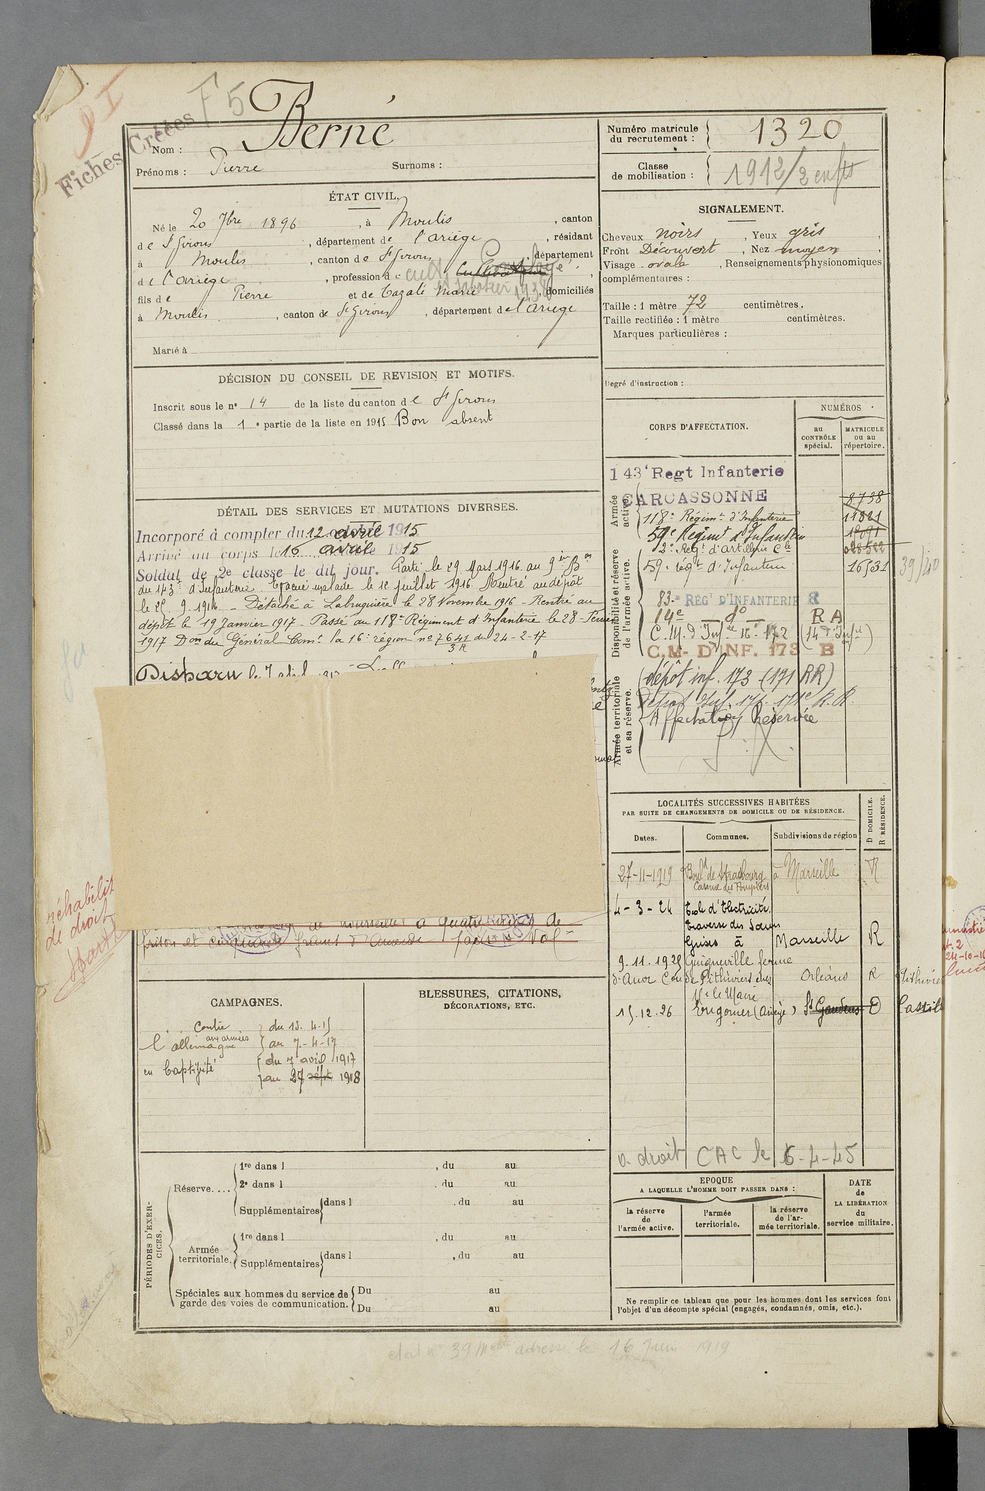 F5
Fiches Créées
Nom : Berné
Prénoms : Pierre Surnoms :
ÉTAT CIVIL.
Né le 20 7bre 1896, à Moulis, canton
de St Girons, département de l'ariège, résidant
à Moulis, canton de St Girons, département
de l'Ariège, profession de
fils de Pierre et de Cazalé Marie domiciliés
à Moulis, canton de St Girons, département de l'ariège
Marié à
DÉCISION DU CONSEIL DE REVISION ET MOTIFS.
Inscrit sous le no 14 de la liste du canton de St Girons
Classé dans la 1e partie de la liste en 1915 Bon absent
DÉTAIL DES SERVICES ET MUTATIONS DIVERSES.
Incorporé à compter du 12 avril 1915
Arrivé au corps le 15 avril 1915
Soldat de 2e classe le dit jour. Parti le 29 Mars 1916 au 9e Bon
du 143e d'Infanterie. Evacué malade le 12 juillet 1916. Rentré au dépôt
le 25. 9. 1916. - Détaché à Labruguière le 28 Novembre 1916 - Rentré au
dépôt le 19 Janvier 1917 - Passé au 118e Régiment d'Infanterie le 28 Février
1917 Don du Général Comt la 16e région no 7641 3R du 24-2-17
Disparu le 7
de à quatre de
prison et cinquante francs d'amende Vol
CAMPAGNES.
Contre l'allemagne aux armées du 13. 4. 15
au 7-4-17
en Captivité du 7 avril 1917
au 27 sept 1918
BLESSURES, CITATIONS,
DÉCORATIONS, ETC.
PÉRIODES D'EXERCICES.
Réserve.... 1re dans l , du au
2e dans l , du au
Supplémentaires dans l , du au
Armée territoriale. 1re dans l , du au
Supplémentaires dans l , du au
Spéciales aux hommes du service de garde des voies de communication. Du au
Du au
Numéro matricule du recrutement : 1320
Classe de mobilisation : 1912/2 enfts
SIGNALEMENT.
Cheveux noirs, Yeux gris,
Front Découvert, Nez moyen
Visage ovale, Renseignements physionomiques
complémentaires :
Taille : 1 mètre 72 centimètres,
Taille rectifiée : 1 mètre centimètres.
Marques particulières :
Degré d'instruction :
CORPS D'AFFECTATION.
NUMÉROS
au CONTRÔLE spécial.
MATRICULE ou au répertoire.
Armée active.
Disponibilité et réserve de l'armée active.
Armée territoriale et sa réserve.
143e Regt Infanterie
CARCASSONNE 8738
118e Régimt d'Infanterie 11821
59e Régimt d'Infanterie
2e Regt d'artillerie Cle
59e regt d'Infanterie 16531
39/40
83e RÉGt D'INFANTERIE R
14e do R A
C.M. d'Inf 172 (14 d'Infie)
C.M. D'INF. 173 B
dépôt inf. 173 - (171 RR)
Affectation Réservée
LOCALITÉS SUCCESSIVES HABITÉES
PAR SUITE DE CHANGEMENTS DE DOMICILE OU DE RÉSIDENCE.
Dates. Communes. Subdivisions de région
D DOMICILE. R RÉSIDENCE.
27-11-1919 Bould de Strasbourg Caserne des Pompiers à Marseille R
4-3-24 Ecole d'Electricité
Traverse des
à Marseille R
9. 11. 1925 Guigneville ferme
de Pithiviers chez Mr le Maire Orléans R
15.12.26 (Ariège) St Gaudens D
a. droit CAC le 6-4-45
EPOQUE
A LAQUELLE L'HOMME DOIT PASSER DANS :
la réserve de l'armée active.
l'armée territoriale.
la réserve de l'armée territoriale.
DATE de LA LIBÉRATION du service militaire.
Ne remplir ce tableau que pour les hommes dont les services font
l'objet d'un décompte spécial (engagés, condamnés, omis, etc.).
réhabilité
de droit
adresse le 16 Juin 1919